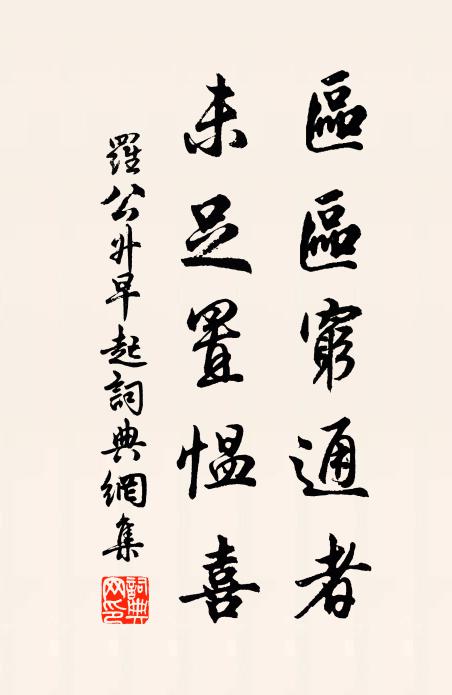 區區窮通者
未足置愠喜
羅公升早起詞典網集
詞典网印